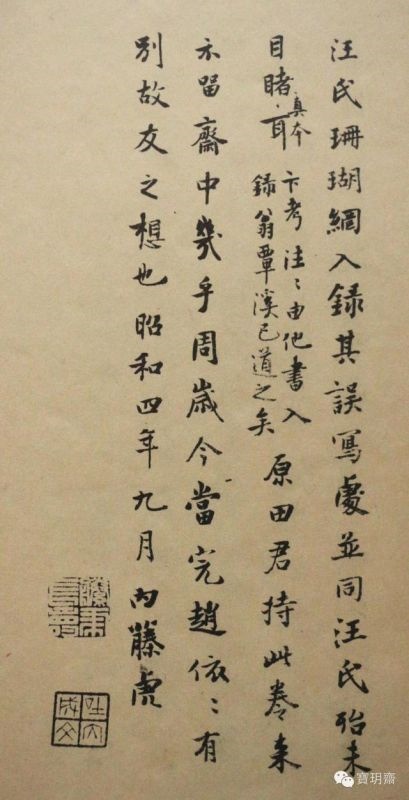 汪氏珊瑚網入録其誤寫處並同汪氏殆未
目睹真本耳卞考注〻由他書入
録翁覃溪已道之矣原田君持此卷来
示留齋中幾乎周歲今當完趙依〻有
別故友之想也昭和四年九月内藤虎
寶玥齋